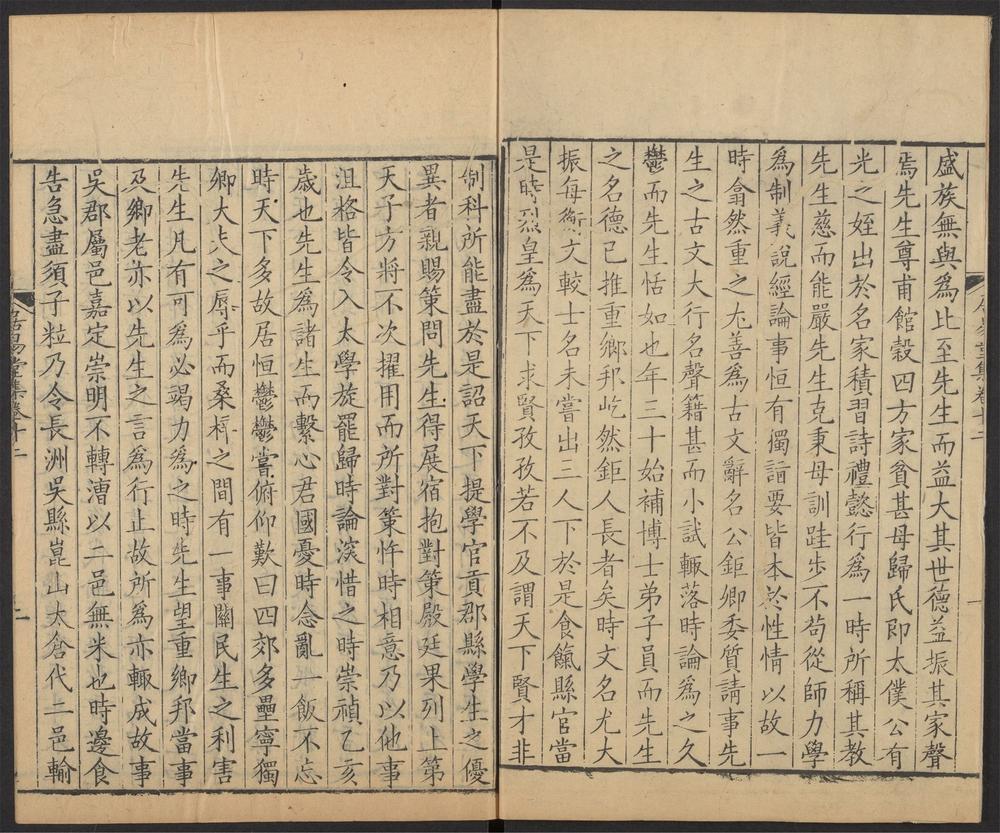 盛族無與爲比至先生而益大其世德益振其家聲
焉先生尊甫館穀四方家貧甚母歸氏即太僕公有
光之姪出於名家積習詩禮懿行爲一時所稱其教
先生慈而能嚴先生克秉母訓跬步不苟從師力學
爲制義說經論事恒有獨詣要皆本於性情以故一
時翕然重之尤善爲古文辭名公鉅卿委質請事先
生之古文大行名聲籍甚而小試輒落時論爲之久
鬱而先生恬如也年三十始補博士弟子員而先生
之名德已推重鄉邦屹然鉅人長者矣時文名尤大
振每衡文較士名未嘗出三人下於是食餼縣官當
是時烈皇爲天下求賢孜孜若不及謂天下賢才非
居易堂集卷十二
制科所能盡於是詔天下提學官貢郡縣學生之優
異者親賜策問先生得展宿抱對策殿廷果列上第
天子方將不次擢用而所對策忤時相意乃以他事
沮格皆令入太學旋罷歸時論深惜之時崇禎乙亥
歲也先生爲諸生而繫心君國憂時念亂一飯不忘
時天下多故居恒鬱鬱嘗俯仰歎曰四郊多壘寧獨
卿大夫之辱乎而桑梓之間有一事關民生之利害
先生凡有可爲必竭力爲之時先生望重鄉邦當事
及鄉老亦以先生之言爲行止故所爲亦輒成故事
吳郡屬邑嘉定崇明不轉漕以二邑無米也時邊食
告急盡須子粒乃令長洲吳縣崑山太倉代二邑輸
居易堂集卷十二